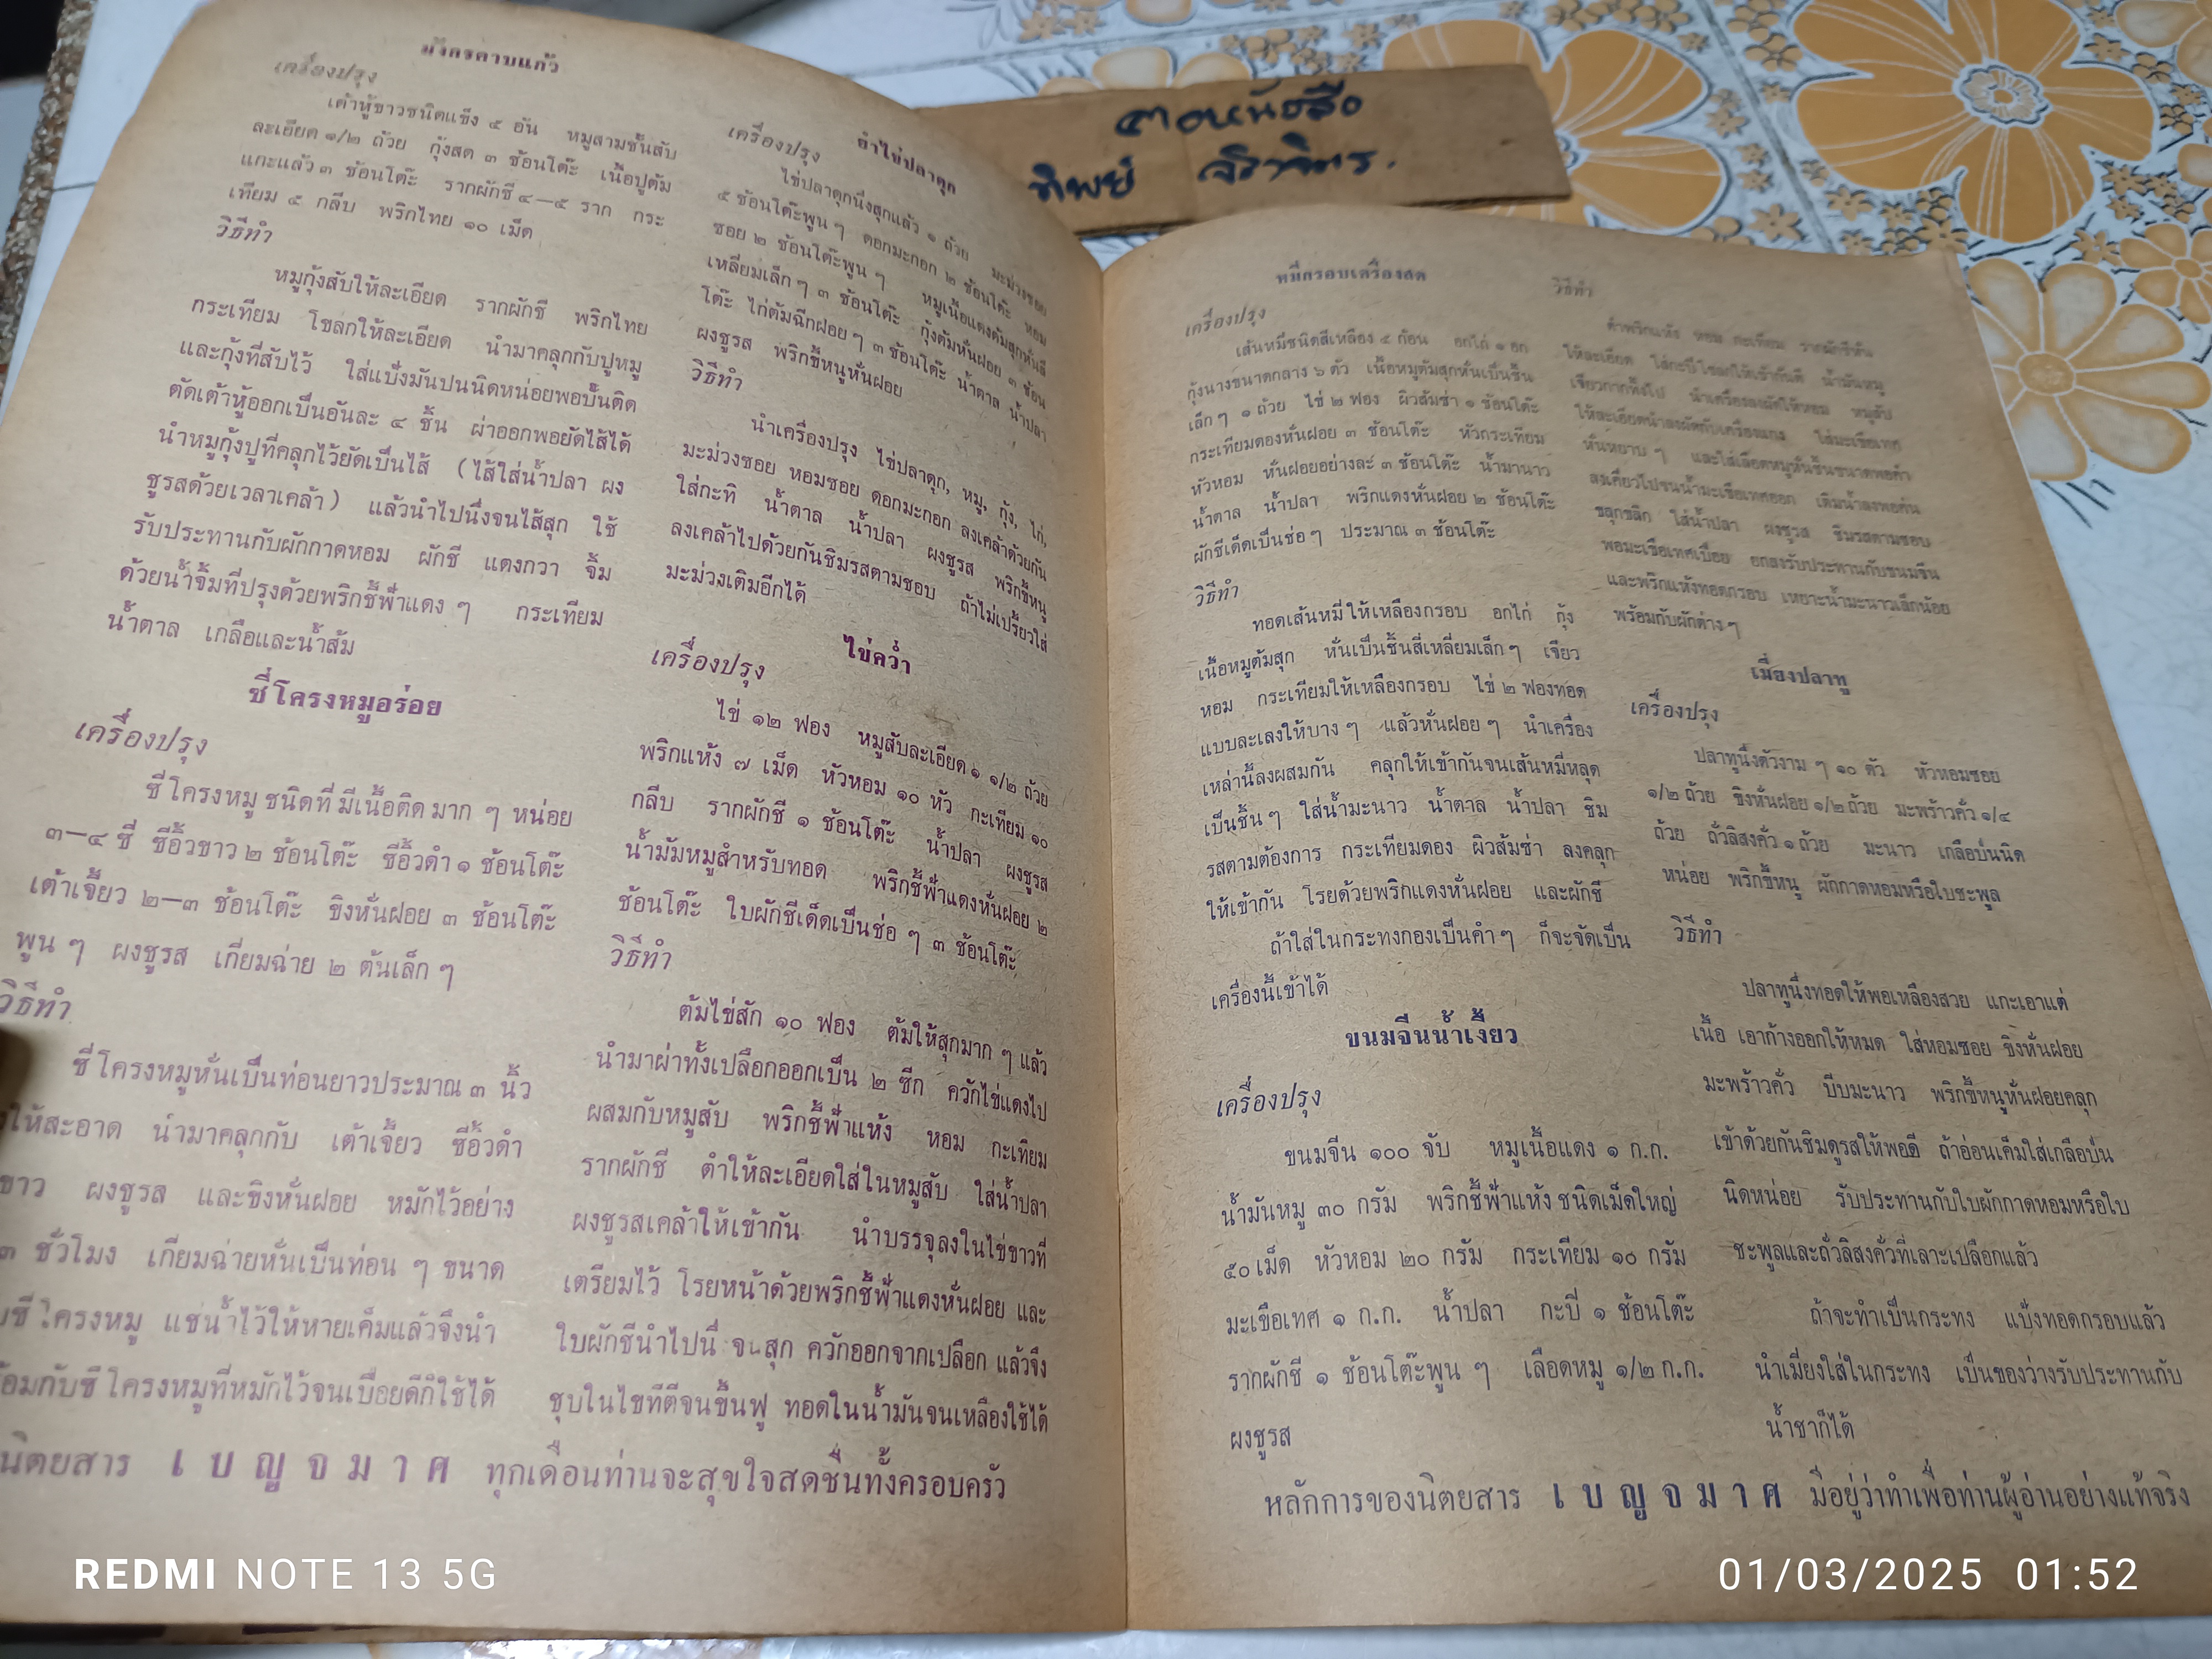 มังกรคาบแก้ว
เครื่องปรุง
เต้าหู้ขาวชนิดแข็ง ๕ อัน หมูสามชั้นสับ
ละเอียด ๑/๒ ถ้วย กุ้งสด ๓ ช้อนโต๊ะ เนื้อปูต้ม
แกะแล้ว ๓ ช้อนโต๊ะ รากผักชี ๔—๕ ราก กระ
เทียม ๕ กลีบ พริกไทย ๑๐ เม็ด
วิธีทำ
หมูกุ้งสับให้ละเอียด รากผักชี พริกไทย
กระเทียม โขลกให้ละเอียด นำมาคลุกกับปูหมู
และกุ้งที่สับไว้ ใส่แป้งมันปนนิดหน่อยพอปั้นติด
ตัดเต้าหู้ออกเป็นอันละ ๔ ชิ้น ผ่าออกพอยัดไส้ได้
นำหมูกุ้งปูที่คลุกไว้ยัดเป็นไส้ (ไส้ใส่น้ำปลา ผง
ชูรสด้วยเวลาเคล้า) แล้วนำไปนึ่งจนไส้สุก ใช้
รับประทานกับผักกาดหอม ผักชี แตงกวา จิ้ม
ด้วยน้ำจิ้มที่ปรุงด้วยพริกชี้ฟ้าแดง ๆ กระเทียม
น้ำตาล เกลือและน้ำส้ม
ซี่โครงหมูอร่อย
เครื่องปรุง
ซี่โครงหมูชนิดที่มีเนื้อติดมาก ๆ หน่อย
๓—๔ ซี่ ซีอิ้วขาว ๒ ช้อนโต๊ะ ซีอิ้วดำ ๑ ช้อนโต๊ะ
เต้าเจี้ยว ๒—๓ ช้อนโต๊ะ ขิงหั่นฝอย ๓ ช้อนโต๊ะ
พูน ๆ ผงชูรส เกี่ยมฉ่าย ๒ ต้นเล็ก ๆ
วิธีทำ
ซี่โครงหมูหั่นเป็นท่อนยาวประมาณ ๓ นิ้ว
ให้สะอาด นำมาคลุกกับ เต้าเจี้ยว ซีอิ้วดำ
ขาว ผงชูรส และขิงหั่นฝอย หมักไว้อย่าง
๓ ชั่วโมง เกี่ยมฉ่ายหั่นเป็นท่อน ๆ ขนาด
ซี่โครงหมู แช่น้ำไว้ให้หายเค็มแล้วจึงนำ
กับซี่โครงหมูที่หมักไว้จนเปื่อยดีก็ใช้ได้
ยำไข่ปลาดุก
เครื่องปรุง
ไข่ปลาดุกนึ่งสุกแล้ว ๑ ถ้วย มะม่วงซอย
๕ ช้อนโต๊ะพูน ๆ ดอกมะกอก ๒ ช้อนโต๊ะ หอม
ซอย ๒ ช้อนโต๊ะพูน ๆ หมูเนื้อแดงต้มสุกหั่นสี่
เหลี่ยมเล็ก ๆ ๓ ช้อนโต๊ะ กุ้งต้มหั่นฝอย ๓ ช้อน
โต๊ะ ไก่ต้มฉีกฝอย ๆ ๓ ช้อนโต๊ะ น้ำตาล น้ำปลา
ผงชูรส พริกขี้หนูหั่นฝอย
วิธีทำ
นำเครื่องปรุง ไข่ปลาดุก, หมู, กุ้ง, ไก่,
มะม่วงซอย หอมซอย ดอกมะกอก ลงเคล้าด้วยกัน
ใส่กะทิ น้ำตาล น้ำปลา ผงชูรส พริกขี้หนู
ลงเคล้าไปด้วยกันชิมรสตามชอบ ถ้าไม่เปรี้ยวใส่
มะม่วงเติมอีกได้
ไข่คว่ำ
เครื่องปรุง
ไข่ ๑๒ ฟอง หมูสับละเอียด ๑ ๑/๒ ถ้วย
พริกแห้ง ๗ เม็ด หัวหอม ๑๐ หัว กะเทียม ๑๐
กลีบ รากผักชี ๑ ช้อนโต๊ะ น้ำปลา ผงชูรส
น้ำมัมหมูสำหรับทอด พริกชี้ฟ้าแดงหั่นฝอย ๒
ช้อนโต๊ะ ใบผักชีเด็ดเป็นช่อ ๆ ๓ ช้อนโต๊ะ
วิธีทำ
ต้มไข่สัก ๑๐ ฟอง ต้มให้สุกมาก ๆ แล้ว
นำมาผ่าทั้งเปลือกออกเป็น ๒ ซีก ควักไข่แดงไป
ผสมกับหมูสับ พริกชี้ฟ้าแห้ง หอม กะเทียม
รากผักชี ตำให้ละเอียดใส่ในหมูสับ ใส่น้ำปลา
ผงชูรสเคล้าให้เข้ากัน นำบรรจุลงในไข่ขาวที่
เตรียมไว้ โรยหน้าด้วยพริกชี้ฟ้าแดงหั่นฝอย และ
ใบผักชีนำไปนึ่ จนสุก ควักออกจากเปลือก แล้วจึง
ชุบในไข่ที่ตีจนขึ้นฟู ทอดในน้ำมันจนเหลืองใช้ได้
นิตยสาร เบญจมาศ ทุกเดือนท่านจะสุขใจสดชื่นทั้งครอบครัว
หมี่กรอบเครื่องสด
เครื่องปรุง
เส้นหมี่ชนิดสีเหลือง ๕ ก้อน อกไก่ ๑ อก
กุ้งนางขนาดกลาง ๖ ตัว เนื้อหมูต้มสุกหั่นเป็นชิ้น
เล็ก ๆ ๑ ถ้วย ไข่ ๒ ฟอง ผิวส้มซ่า ๑ ช้อนโต๊ะ
กระเทียมดองหั่นฝอย ๓ ช้อนโต๊ะ หัวกระเทียม
หัวหอม หั่นฝอยอย่างละ ๓ ช้อนโต๊ะ น้ำมานาว
น้ำตาล น้ำปลา พริกแดงหั่นฝอย ๒ ช้อนโต๊ะ
ผักชีเด็ดเป็นช่อ ๆ ประมาณ ๓ ช้อนโต๊ะ
วิธีทำ
ทอดเส้นหมี่ให้เหลืองกรอบ อกไก่ กุ้ง
เนื้อหมูต้มสุก หั่นเป็นชิ้นสี่เหลี่ยมเล็ก ๆ เจียว
หอม กระเทียมให้เหลืองกรอบ ไข่ ๒ ฟองทอด
แบบละเลงให้บาง ๆ แล้วหั่นฝอย ๆ นำเครื่อง
เหล่านี้ลงผสมกัน คลุกให้เข้ากันจนเส้นหมี่หลุด
เป็นชิ้น ๆ ใส่น้ำมะนาว น้ำตาล น้ำปลา ชิม
รสตามต้องการ กระเทียมดอง ผิวส้มซ่า ลงคลุก
ให้เข้ากัน โรยด้วยพริกแดงหั่นฝอย และผักชี
ถ้าใส่ในกระทงกองเป็นคำ ๆ ก็จะจัดเป็น
เครื่องนี้เข้าได้
ขนมจีนน้ำเงี้ยว
เครื่องปรุง
ขนมจีน ๑๐๐ จับ หมูเนื้อแดง ๑ ก.ก.
น้ำมันหมู ๓๐ กรัม พริกชี้ฟ้าแห้ง ชนิดเม็ดใหญ่
๕๐ เม็ด หัวหอม ๒๐ กรัม กระเทียม ๑๐ กรัม
มะเขือเทศ ๑ ก.ก. น้ำปลา กะปี่ ๑ ช้อนโต๊ะ
รากผักชี ๑ ช้อนโต๊ะพูน ๆ เลือดหมู ๑/๒ ก.ก.
ผงชูรส
วิธีทำ
ตำพริกแห้ง หอม กะเทียม รากผักชีหั่น
ให้ละเอียด ใส่กะปิโขลกให้เข้ากันดี น้ำมันหมู
เจียวกากทิ้งไป นำเครื่องลงผัดให้หอม หมูสับ
ให้ละเอียดนำลงผัดกับเครื่องแกง ใส่มะเขือเทศ
หั่นหยาบ ๆ และใส่เลือดหมูหั่นชิ้นขนาดพอคำ
ลงเคี่ยวไปจนน้ำมะเขือเทศออก เติมน้ำลงพอข้น
ขลุกขลิก ใส่น้ำปลา ผงชูรส ชิมรสตามชอบ
พอมะเขือเทศเปื่อย ยกลงรับประทานกับขนมจีน
และพริกแห้งทอดกรอบ เหยาะน้ำมะนาวเล็กน้อย
พร้อมกับผักต่าง ๆ
เมี่ยงปลาทู
เครื่องปรุง
ปลาทูนึ่งตัวงาม ๆ ๑๐ ตัว หัวหอมซอย
๑/๒ ถ้วย ขิงหั่นฝอย ๑/๒ ถ้วย มะพร้าวคั่ว ๑/๔
ถ้วย ถั่วลิสงคั่ว ๑ ถ้วย มะนาว เกลือป่นนิด
หน่อย พริกขี้หนู ผักกาดหอมหรือใบชะพูล
วิธีทำ
ปลาทูนึ่งทอดให้พอเหลืองสวย แกะเอาแต่
เนื้อ เอาก้างออกให้หมด ใส่หอมซอย ขิงหั่นฝอย
มะพร้าวคั่ว บีบมะนาว พริกขี้หนูหั่นฝอยคลุก
เข้าด้วยกันชิมดูรสให้พอดี ถ้าอ่อนเค็มใส่เกลือป่น
นิดหน่อย รับประทานกับใบผักกาดหอมหรือใบ
ชะพูลและถั่วลิสงคั่วที่เลาะเปลือกแล้ว
ถ้าจะทำเป็นกระทง แป้งทอดกรอบแล้ว
นำเมี่ยงใส่ในกระทง เป็นของว่างรับประทานกับ
น้ำชาก็ได้
หลักการของนิตยสาร เบญจมาศ มีอยู่ว่าทำเพื่อท่านผู้อ่านอย่างแท้จริง
REDMI NOTE 13 5G
01/03/2025 01:52